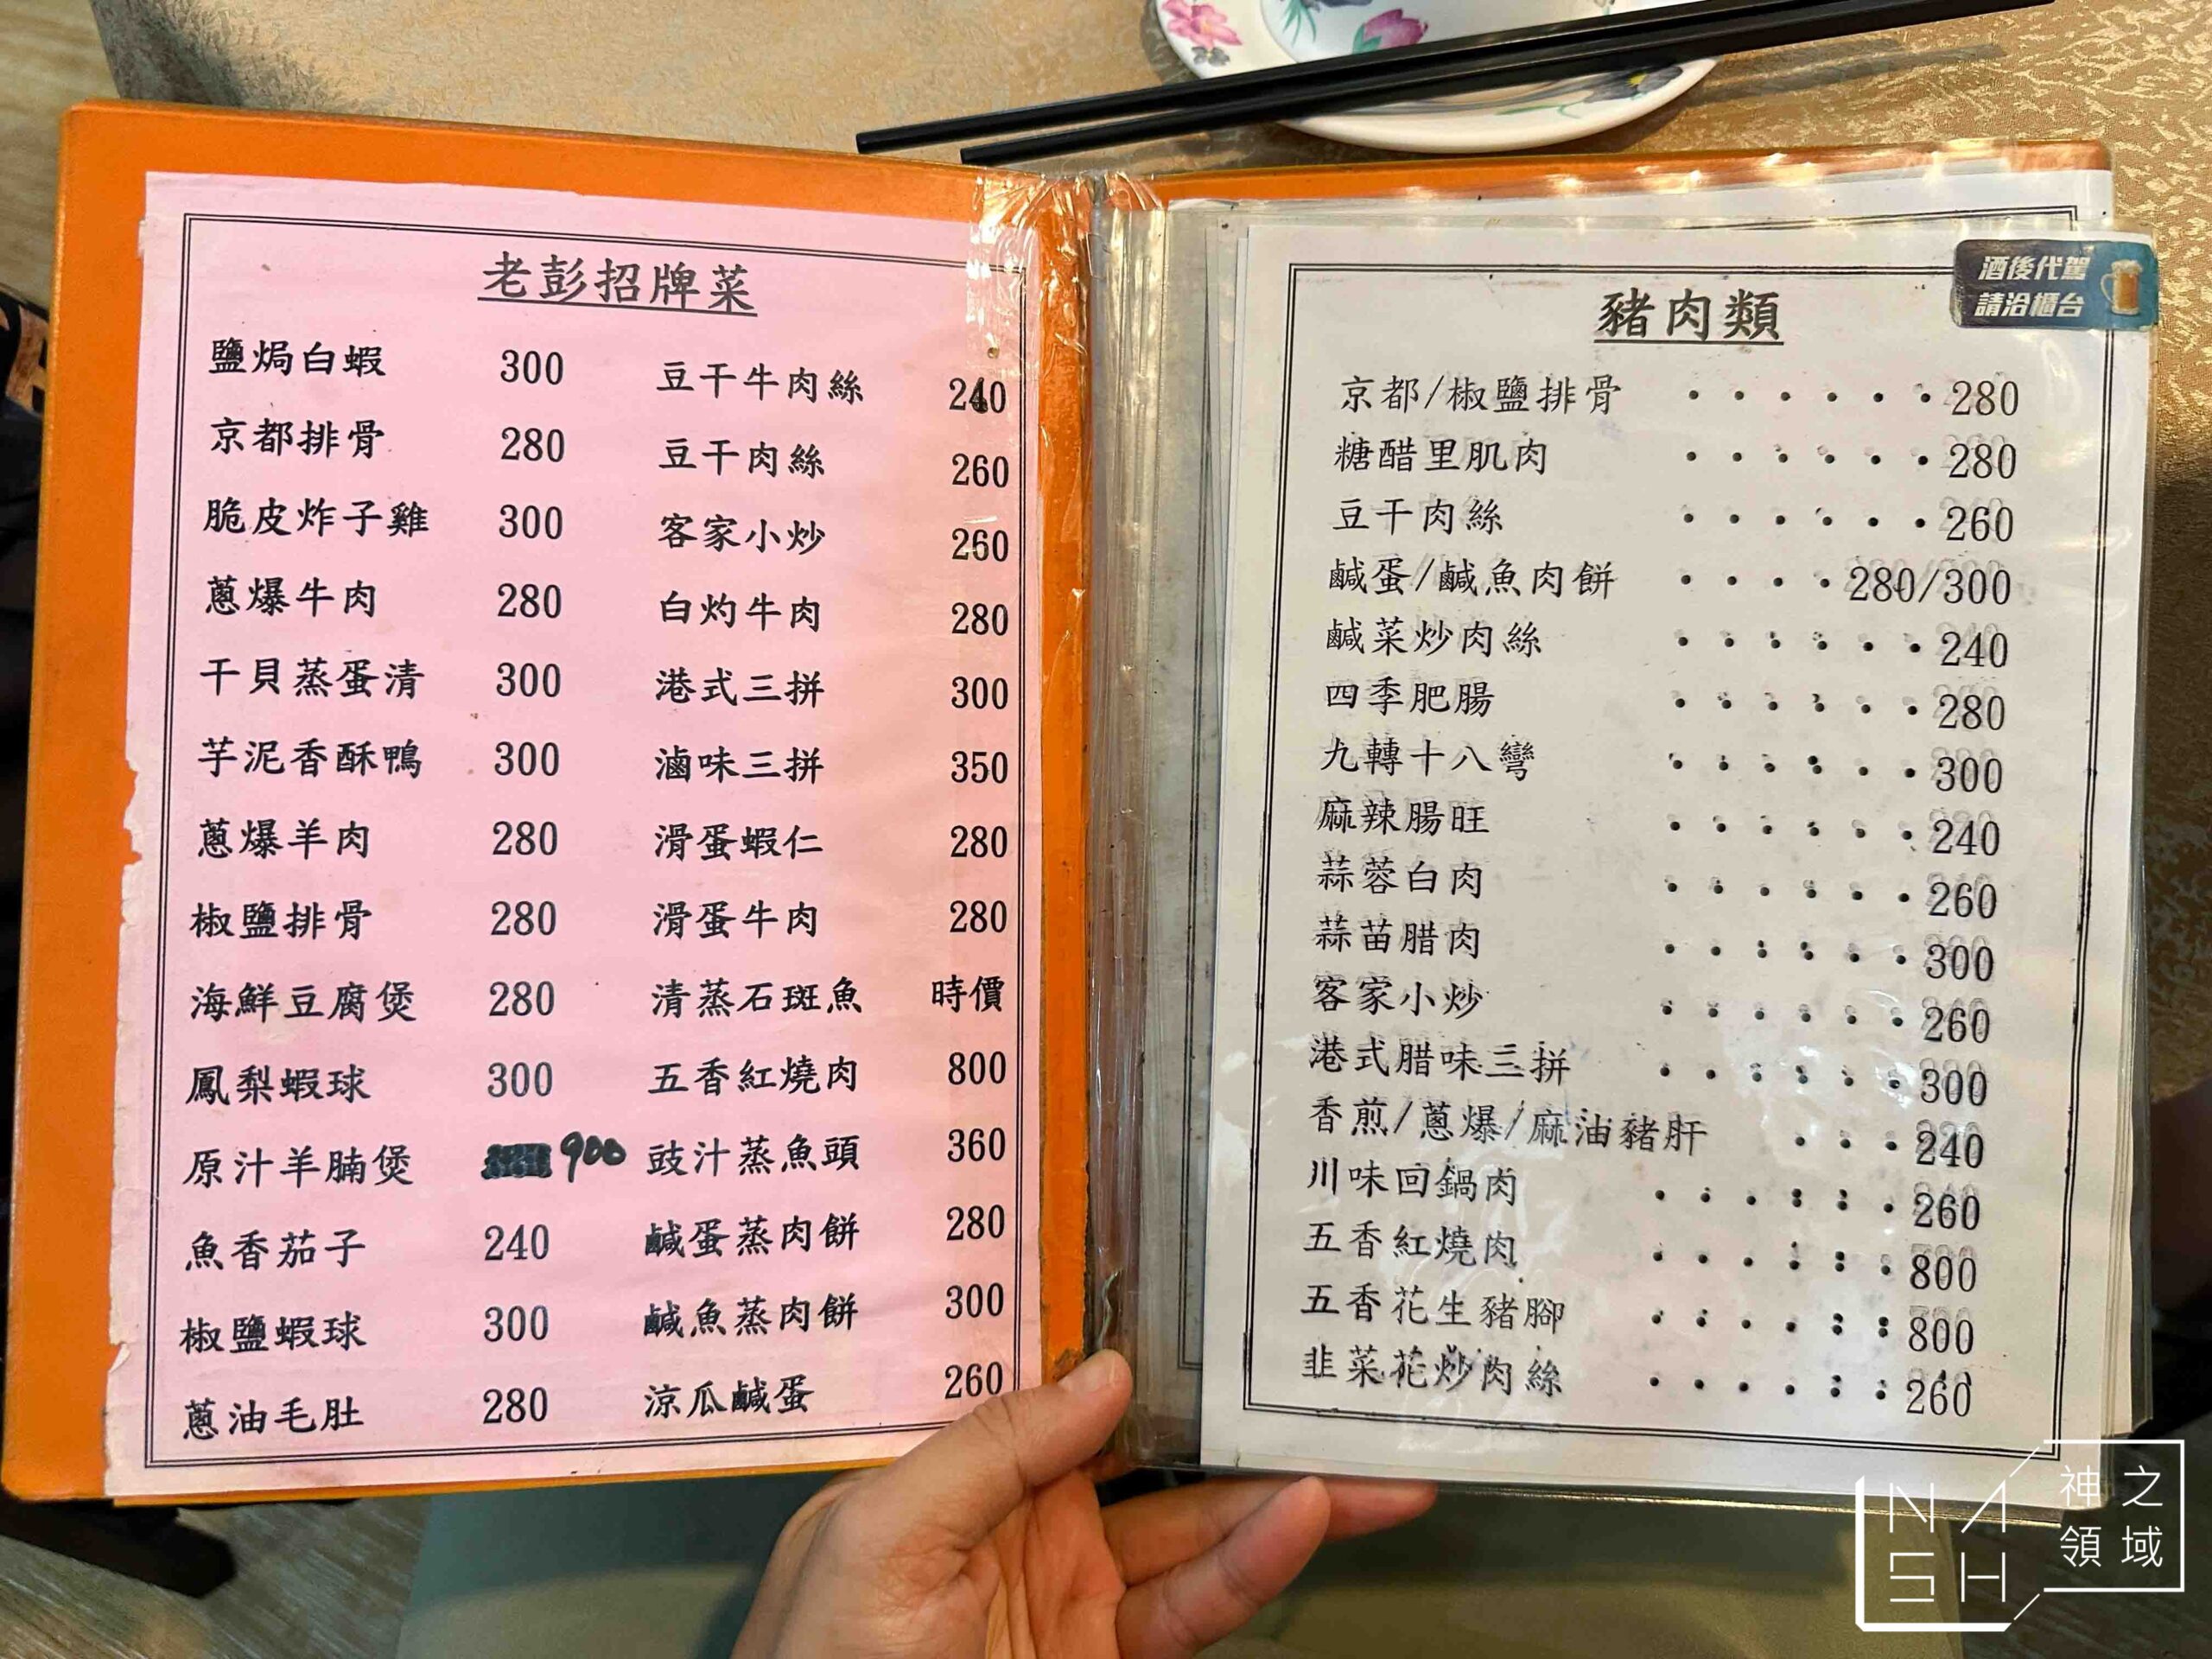 老彭招牌菜
鹽焗白蝦 300
京都排骨 280
脆皮炸子雞 300
蔥爆牛肉 280
干貝蒸蛋清 300
芋泥香酥鴨 300
蔥爆羊肉 280
椒鹽排骨 280
海鮮豆腐煲 280
鳳梨蝦球 300
原汁羊腩煲 900
魚香茄子 240
椒鹽蝦球 300
蔥油毛肚 280
豆干牛肉絲 240
豆干肉絲 260
客家小炒 260
白灼牛肉 280
港式三拼 300
滷味三拼 350
滑蛋蝦仁 280
滑蛋牛肉 280
清蒸石斑魚 時價
五香紅燒肉 800
豉汁蒸魚頭 360
鹹蛋蒸肉餅 280
鹹魚蒸肉餅 300
涼瓜鹹蛋 260
酒後代駕
請洽櫃台
豬肉類
京都/椒鹽排骨 ‧‧‧‧‧‧280
糖醋里肌肉 ‧‧‧‧‧‧280
豆干肉絲 ‧‧‧‧‧‧260
鹹蛋/鹹魚肉餅 ‧‧‧‧280/300
鹹菜炒肉絲 ‧‧‧‧‧‧240
四季肥腸 ‧‧‧‧‧‧280
九轉十八彎 ‧‧‧‧‧‧300
麻辣腸旺 ‧‧‧‧‧‧240
蒜蓉白肉 ‧‧‧‧‧‧260
蒜苗腊肉 ‧‧‧‧‧‧300
客家小炒 ‧‧‧‧‧‧260
港式腊味三拼 ‧‧‧‧‧‧300
香煎/蔥爆/麻油豬肝 ‧‧‧240
川味回鍋肉 ‧‧‧‧‧‧260
五香紅燒肉 ‧‧‧‧‧‧800
五香花生豬腳 ‧‧‧‧‧‧800
韭菜花炒肉絲 ‧‧‧‧‧‧260
NASH
神之
領域